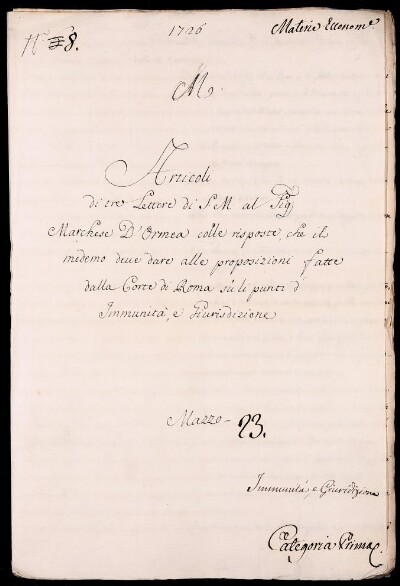 1726
Materie Econome.
N° 8.
M
Articoli
di tre Lettere di S. M. al Sig.
Marchese D'Ormea colle risposte, che il
medemo deve dare alle proposizioni fatte
dalla Corte di Roma sù li punti d'
Immunità, e Giurisdizione
Mazzo - 23.
Immunità, e Giurisdizione
Categoria Prima